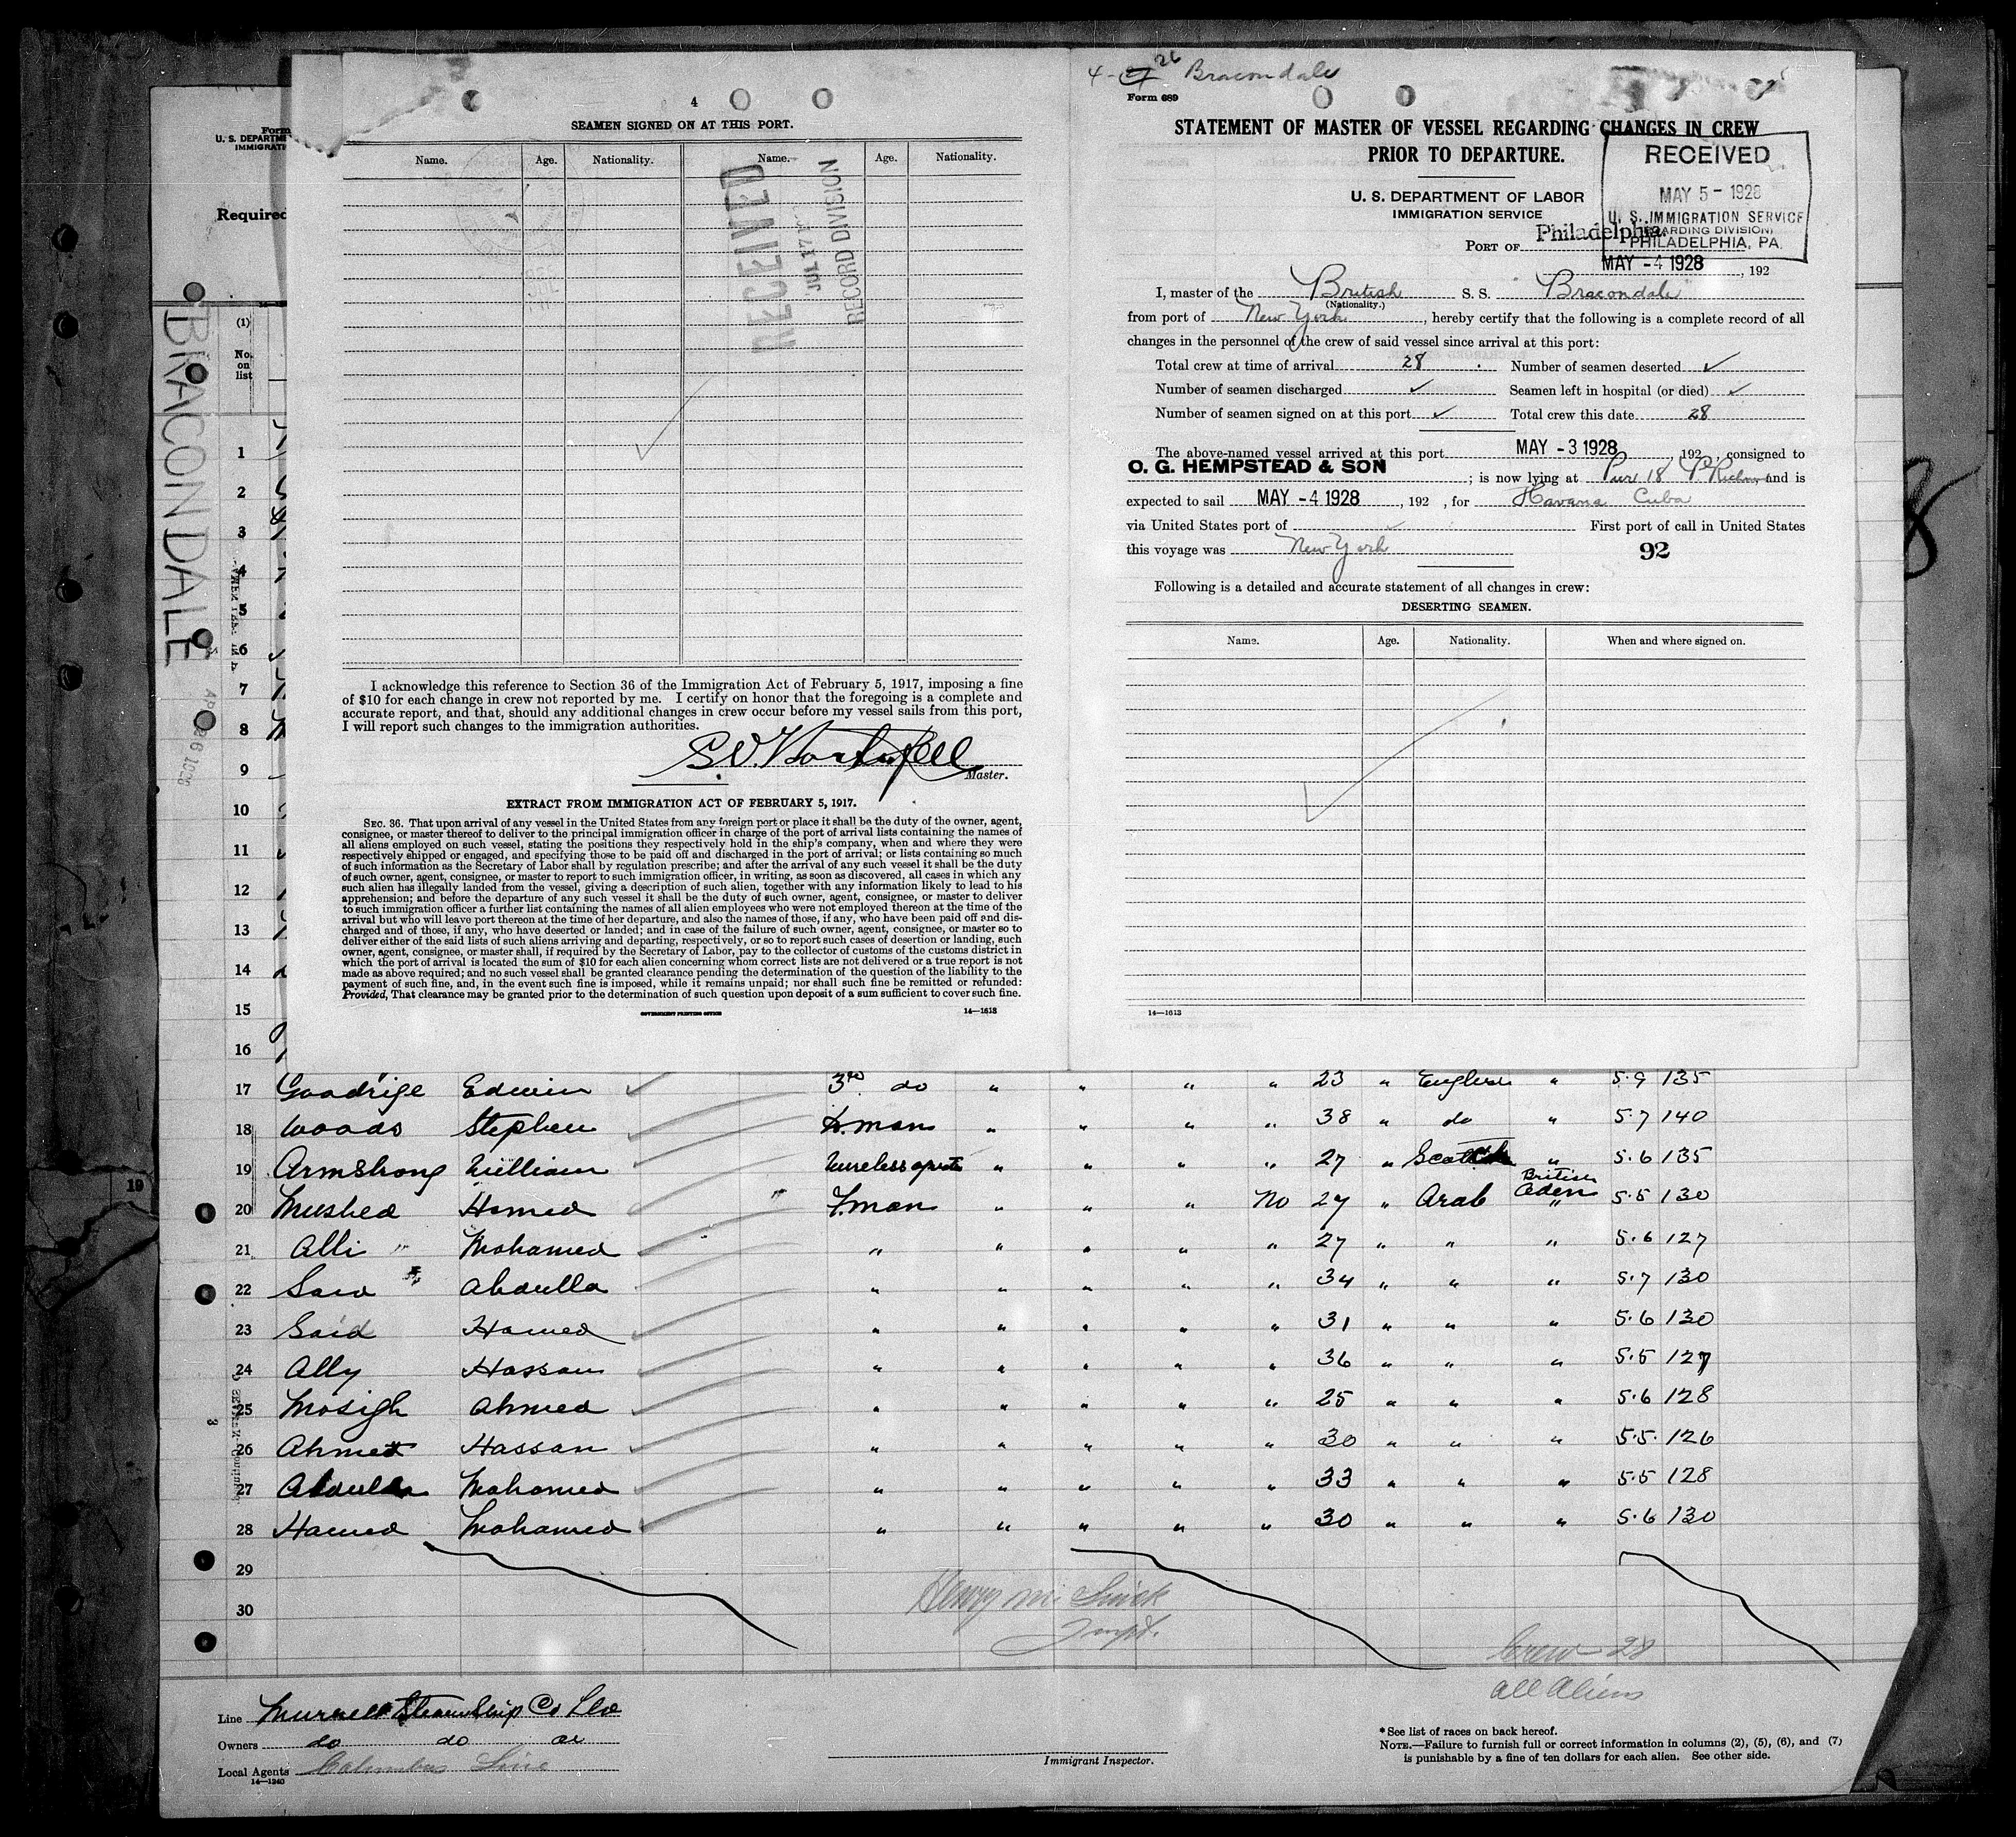 4
SEAMEN SIGNED ON AT THIS PORT.
Name. Age. Nationality. Name. Age. Nationality.
RECEIVED
JUL 17
RECORD DIVISION
I acknowledge this reference to Section 36 of the Immigration Act of February 5, 1917, imposing a fine
of $10 for each change in crew not reported by me. I certify on honor that the foregoing is a complete and
accurate report, and that, should any additional changes in crew occur before my vessel sails from this port,
I will report such changes to the immigration authorities.
Master.
EXTRACT FROM IMMIGRATION ACT OF FEBRUARY 5, 1917.
SEC. 36. That upon arrival of any vessel in the United States from any foreign port or place it shall be the duty of the owner, agent,
consignee, or master thereof to deliver to the principal immigration officer in charge of the port of arrival lists containing the names of
all aliens employed on such vessel, stating the positions they respectively hold in the ship's company, when and where they were
respectively shipped or engaged, and specifying those to be paid off and discharged in the port of arrival; or lists containing so much
of such information as the Secretary of Labor shall by regulation prescribe; and after the arrival of any such vessel it shall be the duty
of such owner, agent, consignee, or master to report to such immigration officer, in writing, as soon as discovered, all cases in which any
such alien has illegally landed from the vessel, giving a description of such alien, together with any information likely to lead to his
apprehension; and before the departure of any such vessel it shall be the duty of such owner, agent, consignee, or master to deliver
to such immigration officer a further list containing the names of all alien employees who were not employed thereon at the time of the
arrival but who will leave port thereon at the time of her departure, and also the names of those, if any, who have been paid off and dis-
charged and of those, if any, who have deserted or landed; and in case of the failure of such owner, agent, consignee, or master so to
deliver either of the said lists of such aliens arriving and departing, respectively, or so to report such cases of desertion or landing, such
owner, agent, consignee, or master shall, if required by the Secretary of Labor, pay to the collector of customs of the customs district in
which the port of arrival is located the sum of $10 for each alien concerning whom correct lists are not delivered or a true report is not
made as above required; and no such vessel shall be granted clearance pending the determination of the question of the liability to the
payment of such fine, and, in the event such fine is imposed, while it remains unpaid; nor shall such fine be remitted or refunded:
Provided, That clearance may be granted prior to the determination of such question upon deposit of a sum sufficient to cover such fine.
GOVERNMENT PRINTING OFFICE 14—1613
4- 26 Bracondale
Form 689
STATEMENT OF MASTER OF VESSEL REGARDING CHANGES IN CREW
PRIOR TO DEPARTURE.
RECEIVED
MAY 5 - 1928
U. S. IMMIGRATION SERVICE
PHILADELPHIA, PA.
U. S. DEPARTMENT OF LABOR
IMMIGRATION SERVICE
PORT OF Philadelphia.
MAY - 4 1928, 192
I, master of the British S. S. "Bracondale"
(Nationality.)
from port of New York, hereby certify that the following is a complete record of all
changes in the personnel of the crew of said vessel since arrival at this port:
Total crew at time of arrival 28 Number of seamen deserted ✓
Number of seamen discharged ✓ Seamen left in hospital (or died) ✓
Number of seamen signed on at this port ✓ Total crew this date 28
The above-named vessel arrived at this port MAY - 3 1928, 192 , consigned to
O. G. HEMPSTEAD & SON; is now lying at Pier 18 P. Richm and is
expected to sail MAY - 4 1928, 192 , for Havana Cuba
via United States port of First port of call in United States
this voyage was New York 92
Following is a detailed and accurate statement of all changes in crew:
DESERTING SEAMEN.
Name. Age. Nationality. When and where signed on.
14—1613
Form
U. S. DEPARTME
IMMIGRATI
Required
BRACONDALE
(1)
No. on list
1
2
3
4
5
6
7
8
9
10
11
12
13
14
15
16
17 Goodrige Edwin ✓ 3rd do " " " " 23 " English " 5.9 135
18 Woods Stephen D.man " " " " 38 " do " 5.7 140
19 Armstrong William Wireless " " " " 27 " Scottish " 5.6 135
20 Mushed Hamed F.man " " " No 27 " Arab British Aden 5.5 130
21 Alli Mohamed " " " " " 27 " " " 5.6 127
22 Said Abdulla " " " " " 34 " " " 5.7 130
23 Said Hamed " " " " " 31 " " " 5.6 130
24 Ally Hassan " " " " " 36 " " " 5.5 127
25 Mosigh Ahmed " " " " " 25 " " " 5.6 128
26 Ahmet Hassan " " " " " 30 " " " 5.5. 126
27 Abdulla Mohamed " " " " " 33 " " " 5.5 128
28 Hamed Mohamed " " " " " 30 " " " 5.6 130
29
30
Crew 28
all Aliens
Line Murrell SteamShip Co Ltd
Owners do do do
Local Agents Columbus Line
14—1240
Immigrant Inspector.
* See list of races on back hereof.
NOTE.—Failure to furnish full or correct information in columns (2), (5), (6), and (7)
is punishable by a fine of ten dollars for each alien. See other side.